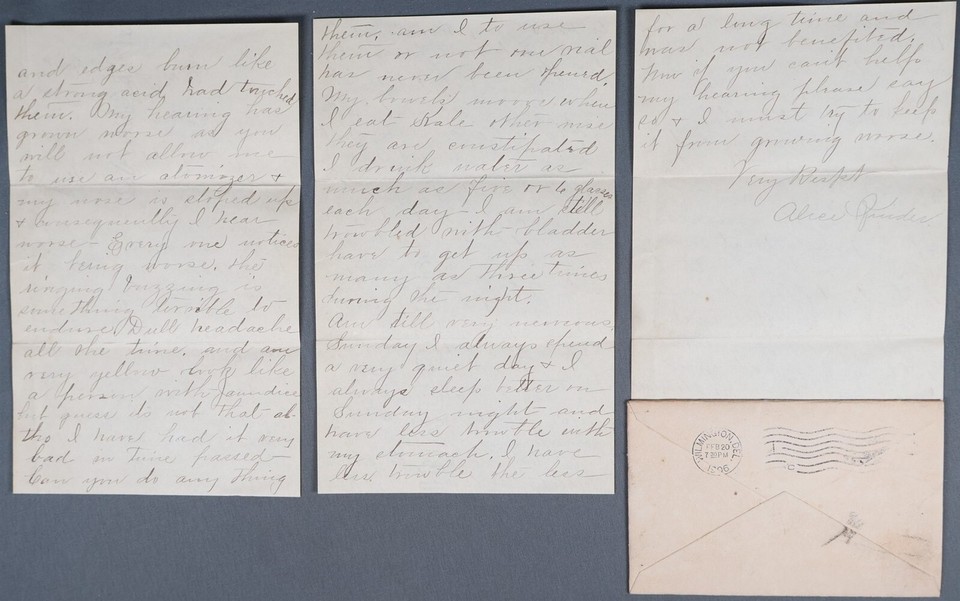 and edges burn like
a strong acid had touched
them. My hearing has
grown worse as you
will not allow me
to use an atomizer &
my nose is stoped up
& consequently I hear
worse - Every one notices
it being worse. the
singing buzzing is
something terible to
endure. Dull headache
all the time, and am
very yellow look like
a person with Jaundice
but guess its not that al-
tho I have had it very
bad in time passed -
Can you do any thing
them. am I to use
them or not one vial
has never been opened.
My bowels moove when
I eat Kale other wise
they are constipated
I drink water as
much as five or 6 glasses
each day - I am still
troubled with bladder
have to get up as
many as three times
during the night.
Am still very nervous.
Sunday I always spend
a very quiet day & I
always sleep better on
Sunday night and
have less trouble with
my stomach. I have
less trouble the less
for a long time and
was not benefited.
Now if you can't help
my hearing please say
so & I must try to keep
it from growing worse.
Very Respt
Alice
WILMINGTON, DEL.
FEB 20
7 PM